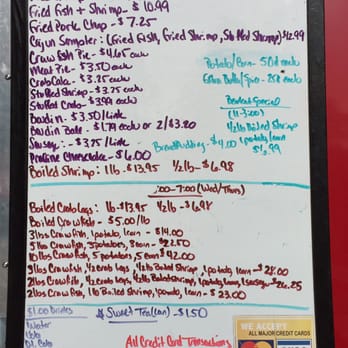 Fried Fish + Shrimp - $10.99
Fried Pork Chop - $7.25
Cajun Sampler: (Fried Fish, Fried Shrimp, Stuffed Shrimp) $12.99
Crawfish Pie - $4.65 each
Meat Pie - $3.50 each
Crab Cake - $3.25 each
Stuffed Shrimp - $3.75 each
Stuffed Crab - $3.99 each
Boudin - $3.50/Link
Boudin Balls - $1.79 each or 2/$3.20
Sausage - $3.75/Link
Praline Cheesecake - $6.00
Potato/Corn - 50¢ each
Extra Butter/Spice - 25¢ each
Basket Special
(11-3:00)
1/2 lb Boiled Shrimp
1 potato, 1 corn
$6.99
Bread Pudding - $4.00
Boiled Shrimp: 1lb - $13.95 1/2 lb - $6.98
:00-7:00 (Wed/Thurs)
Boiled Crab Legs: 1lb - $13.95 1/2 lb - $6.98
Boiled Crawfish - $5.00/lb
3 lbs Crawfish, 1 potato, 1 corn - $14.00
5 lbs Crawfish, 3 potatoes, 3 corn - $22.50
10 lbs Crawfish, 5 potato, 5 corn $42.00
3 lbs Crawfish, 1/2 crab legs, 1/2 lb Boiled Shrimp, 1 potato, 1 corn - $28.00
2 lbs Crawfish, 1/2 crab legs, 1/2 lb Boiled Shrimp, 1 potato, 1 corn, 1 sausage $26.25
2 lbs Crawfish, 1 lb Boiled Shrimp, 1 potato, 1 corn - $23.00
$1.00 Drinks
Water
Coke
Dt. Coke
Sweet Tea (can) - $1.50
All Credit Card Transactions
WE ACCEPT
ALL MAJOR CREDIT CARDS